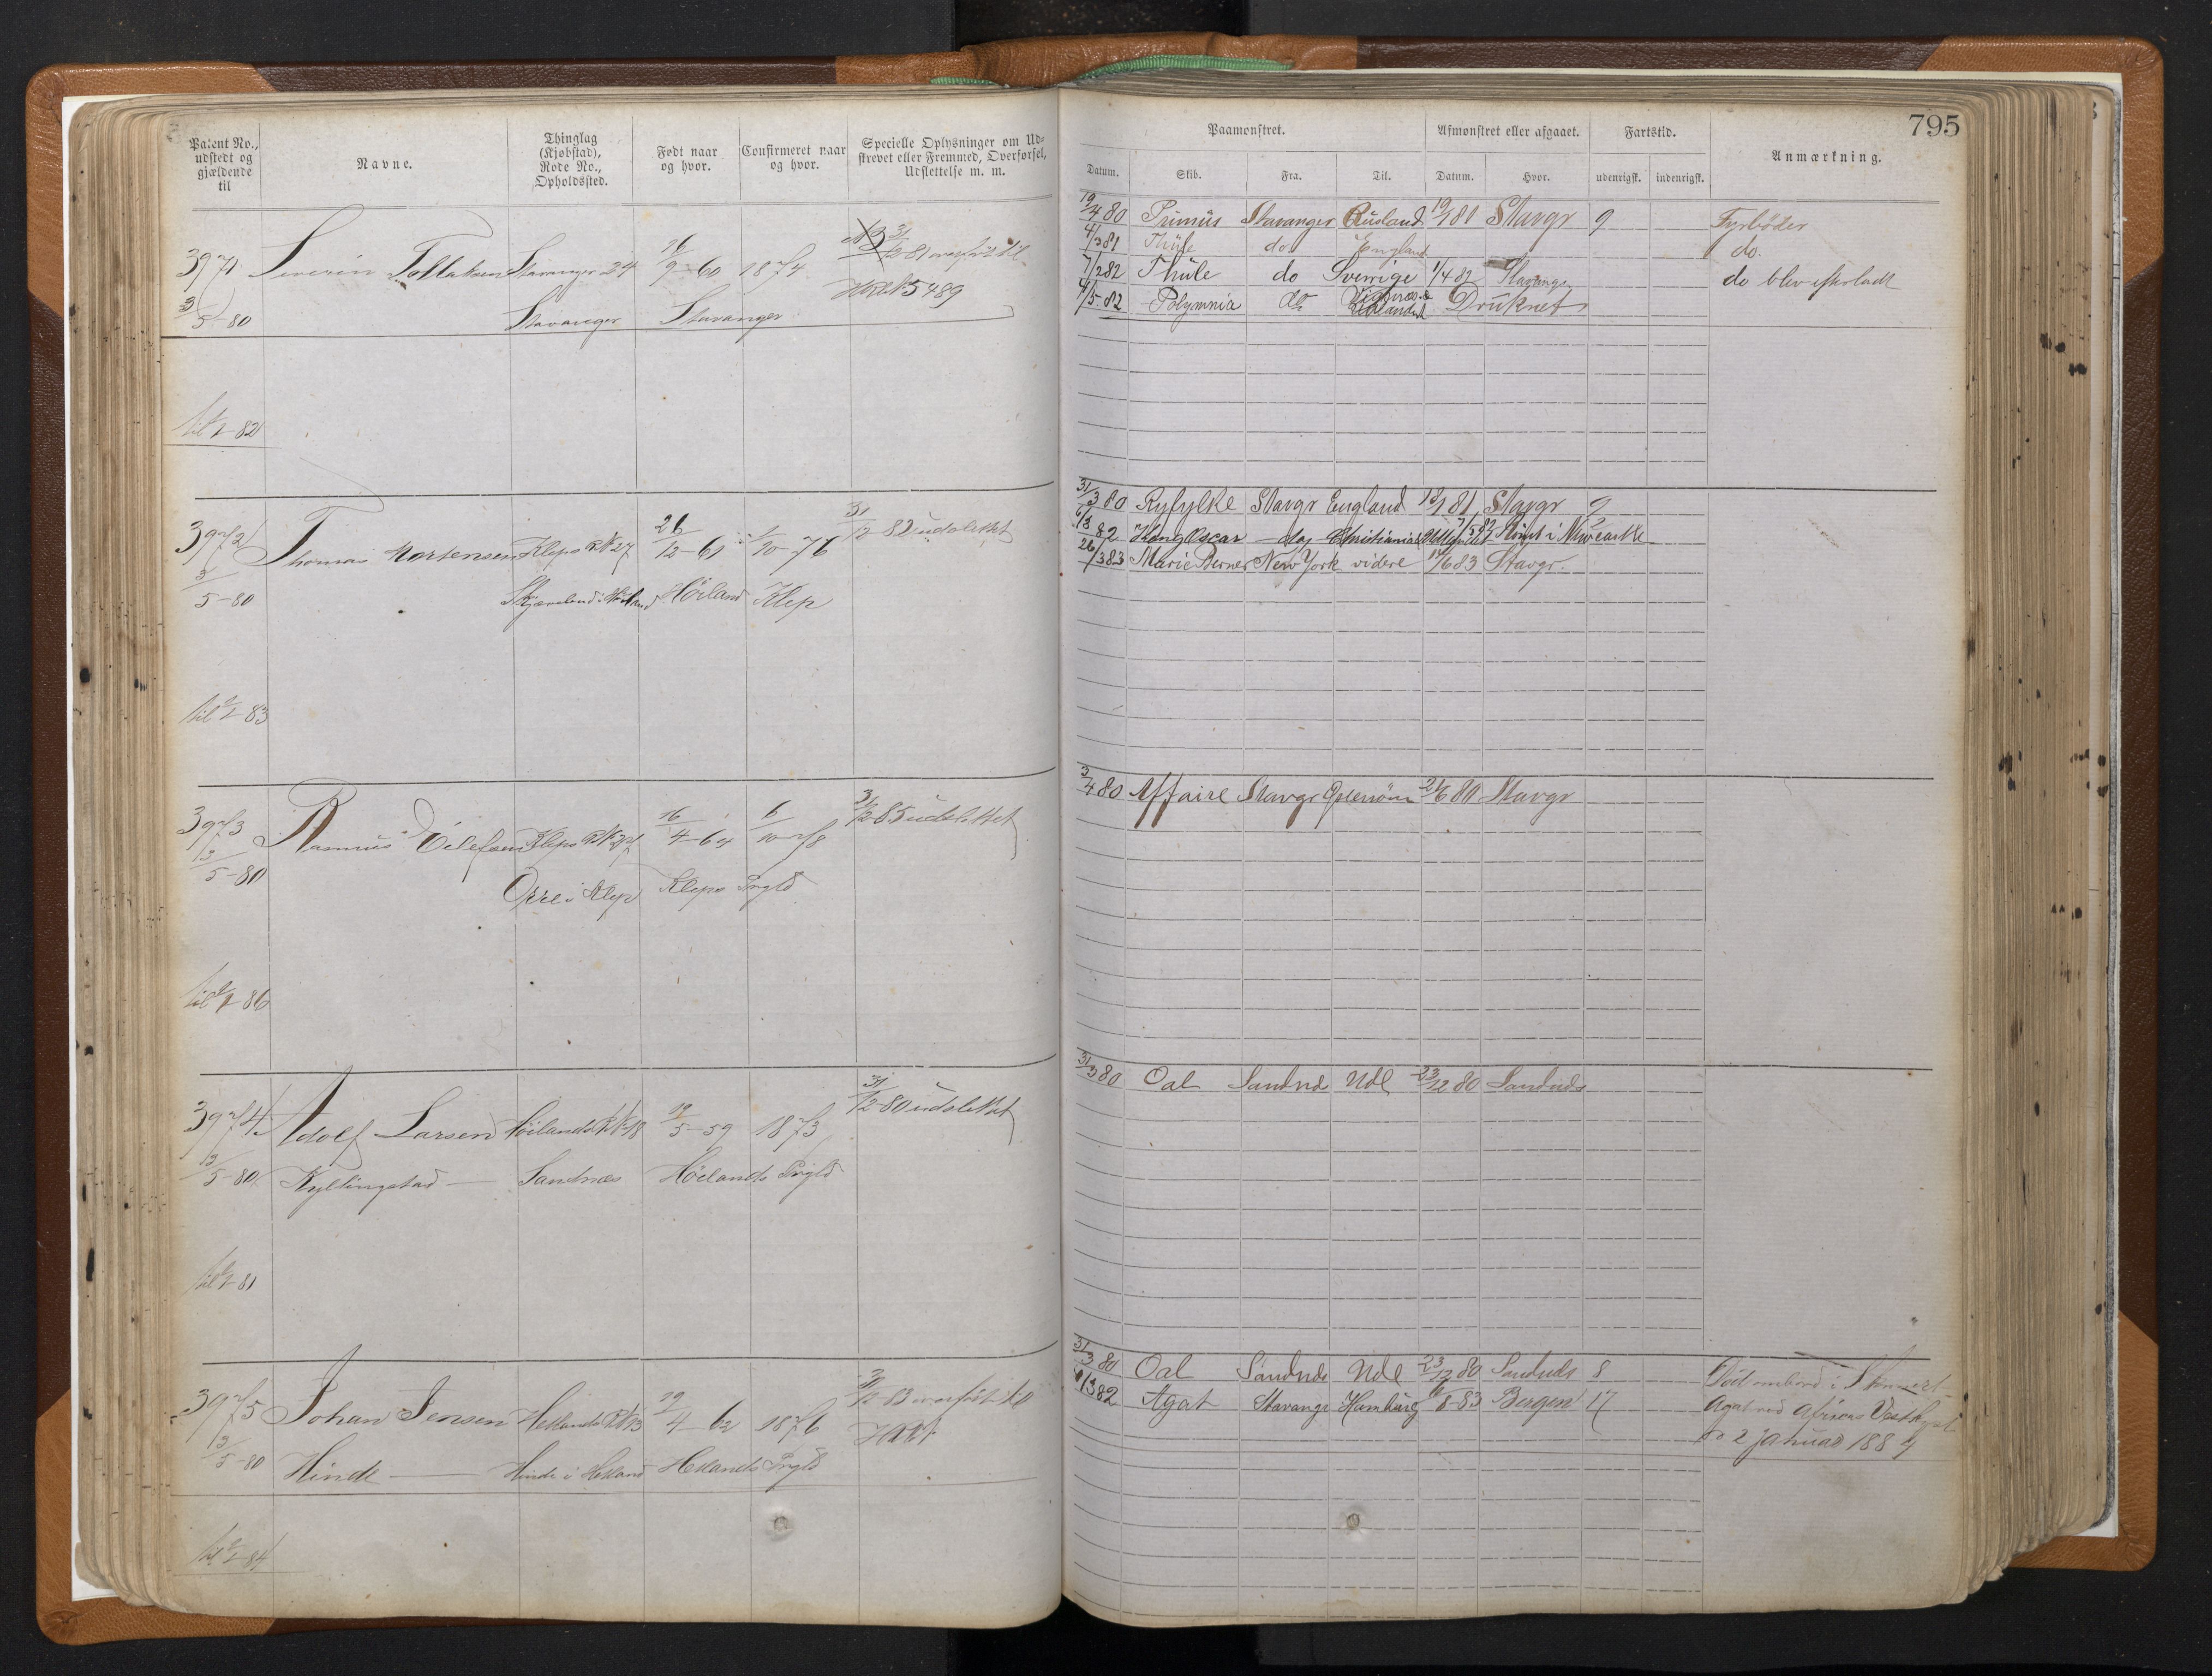 795
Patent No., udstedt og gjældende til
Navne.
Thinglag (Kjøbstad), Rode No., Opholdssted.
Født naar og hvor.
Confirmeret naar og hvor.
Specielle Oplysninger om Udskrevet eller Fremmed, Overførsel, Udslettelse m. m.
Paamønstret.
Afmønstret eller afgaaet.
Fartstid.
Anmærkning.
Datum. Skib. Fra. Til. Datum. Hvor. udenrigsk. indenrigsk.
3971 Severin Tollaksen Stavanger 24 9-60 1874 31/12 81 overført til
5489
3/5-80 Stavanger Stavanger
til 82
19/4 80 Primus Stavanger Rusland 19/1 81 Stavgr 9 Fyrbøder
4/3 81 Thule do England do.
7/2 82 Thule do Sverige 1/4 82 Stavanger do blev efterladt
4/5 82 Polymnia do Udlandet Druknet
3972 Thomas Mortensen Kleps R N 27 26/12-61 1/10 76 31/12-82 udslettet
3/5-80 Skjæveland i Høiland Høiland Klep
til 83
31/3 80 Ryfylke Stavgr England 81 Stavgr 9
82 Kong Oscar Christiania Rømt i Newcastle
26/3 83 Marie Berner New York videre 6 83 Stavgr.
3973 Rasmus Kleps R N 16/4-64 6/10-78 31/12-85 udslettet
13/5-80 Orre i Klep Kleps Prgld
til 86
3/4 80 Affaire Stavgr 6 80 Stavgr
3974 Adolf Larsen Høilands R N 18 19/5-59 1873 31/12-80 udslettet
13/5-80 Kyllingstad Sandnæs Høilands Prgld
til 81
31/3 80 Oal Sandnds Udl 23/12 80 Sandnds
3975 Johan Jensen Hetlands R N 13 4-62 1876 31/12-83 overført til
13/5-80 Hinde Hinde i Hetland Hetlands Prgld
til 84
31/3 80 Oal Sandnds Udl 23/12 80 Sandnds 8 Død ombord i
3 82 Agat Stavangr Hamburg 8-83 Bergen 17 Agat ved Africas Vestkyst
2 januar 1884